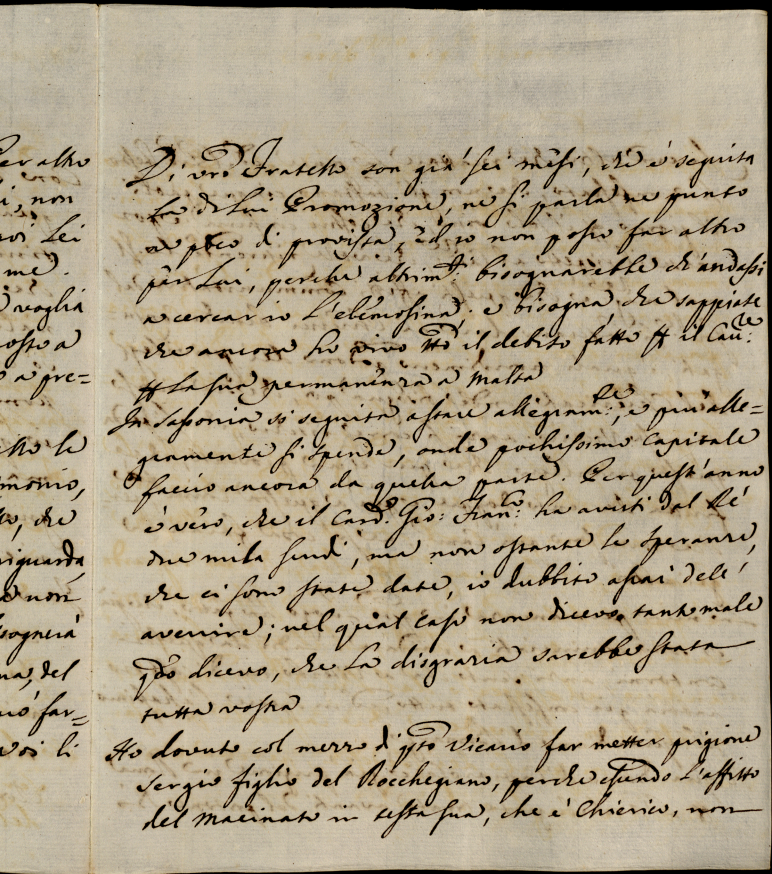 er altro
i, non
voi Lei
me.
voglia
osto a
a pre=
tto le
monio,
to, che
riguarda
non
sognerà
na, del
uò far=
voi li
Di vro Fratello son già sei mesi, che è seguita
la di lui Promozione, ne si parla ne punto
ne poco di provista, ed io non posso far altro
per Lui, perche altrimti bisognarebbe ch'andassi
a cercar io l'elemosina; e bisogna che sappiate
che ancora ho vivo tto il debito fatto il Cav:re
la sua permanenza a Malta
In Sassonia si seguita a stare allegramte, e più alle=
gramente si spende, onde pochissimo capitale
faccio ancora da quella parte. Per quest'anno
è vero, che il Card. Gio: Franco: ha avuti dal Rè
due mila scudi, ma non ostante le speranze,
che ci sono state date, io dubbito assai dell'
avenire; nel qual caso non dicevo tanto male
qdo dicevo, che la disgrazia sarebbe stata
tutta vostra
Ho dovuto col mezzo di qsto Vicario far metter prigione
Sergio figlio del Rocchegiano, perche essendo l'affitto
del macinato in testa sua, che è Chierico, non